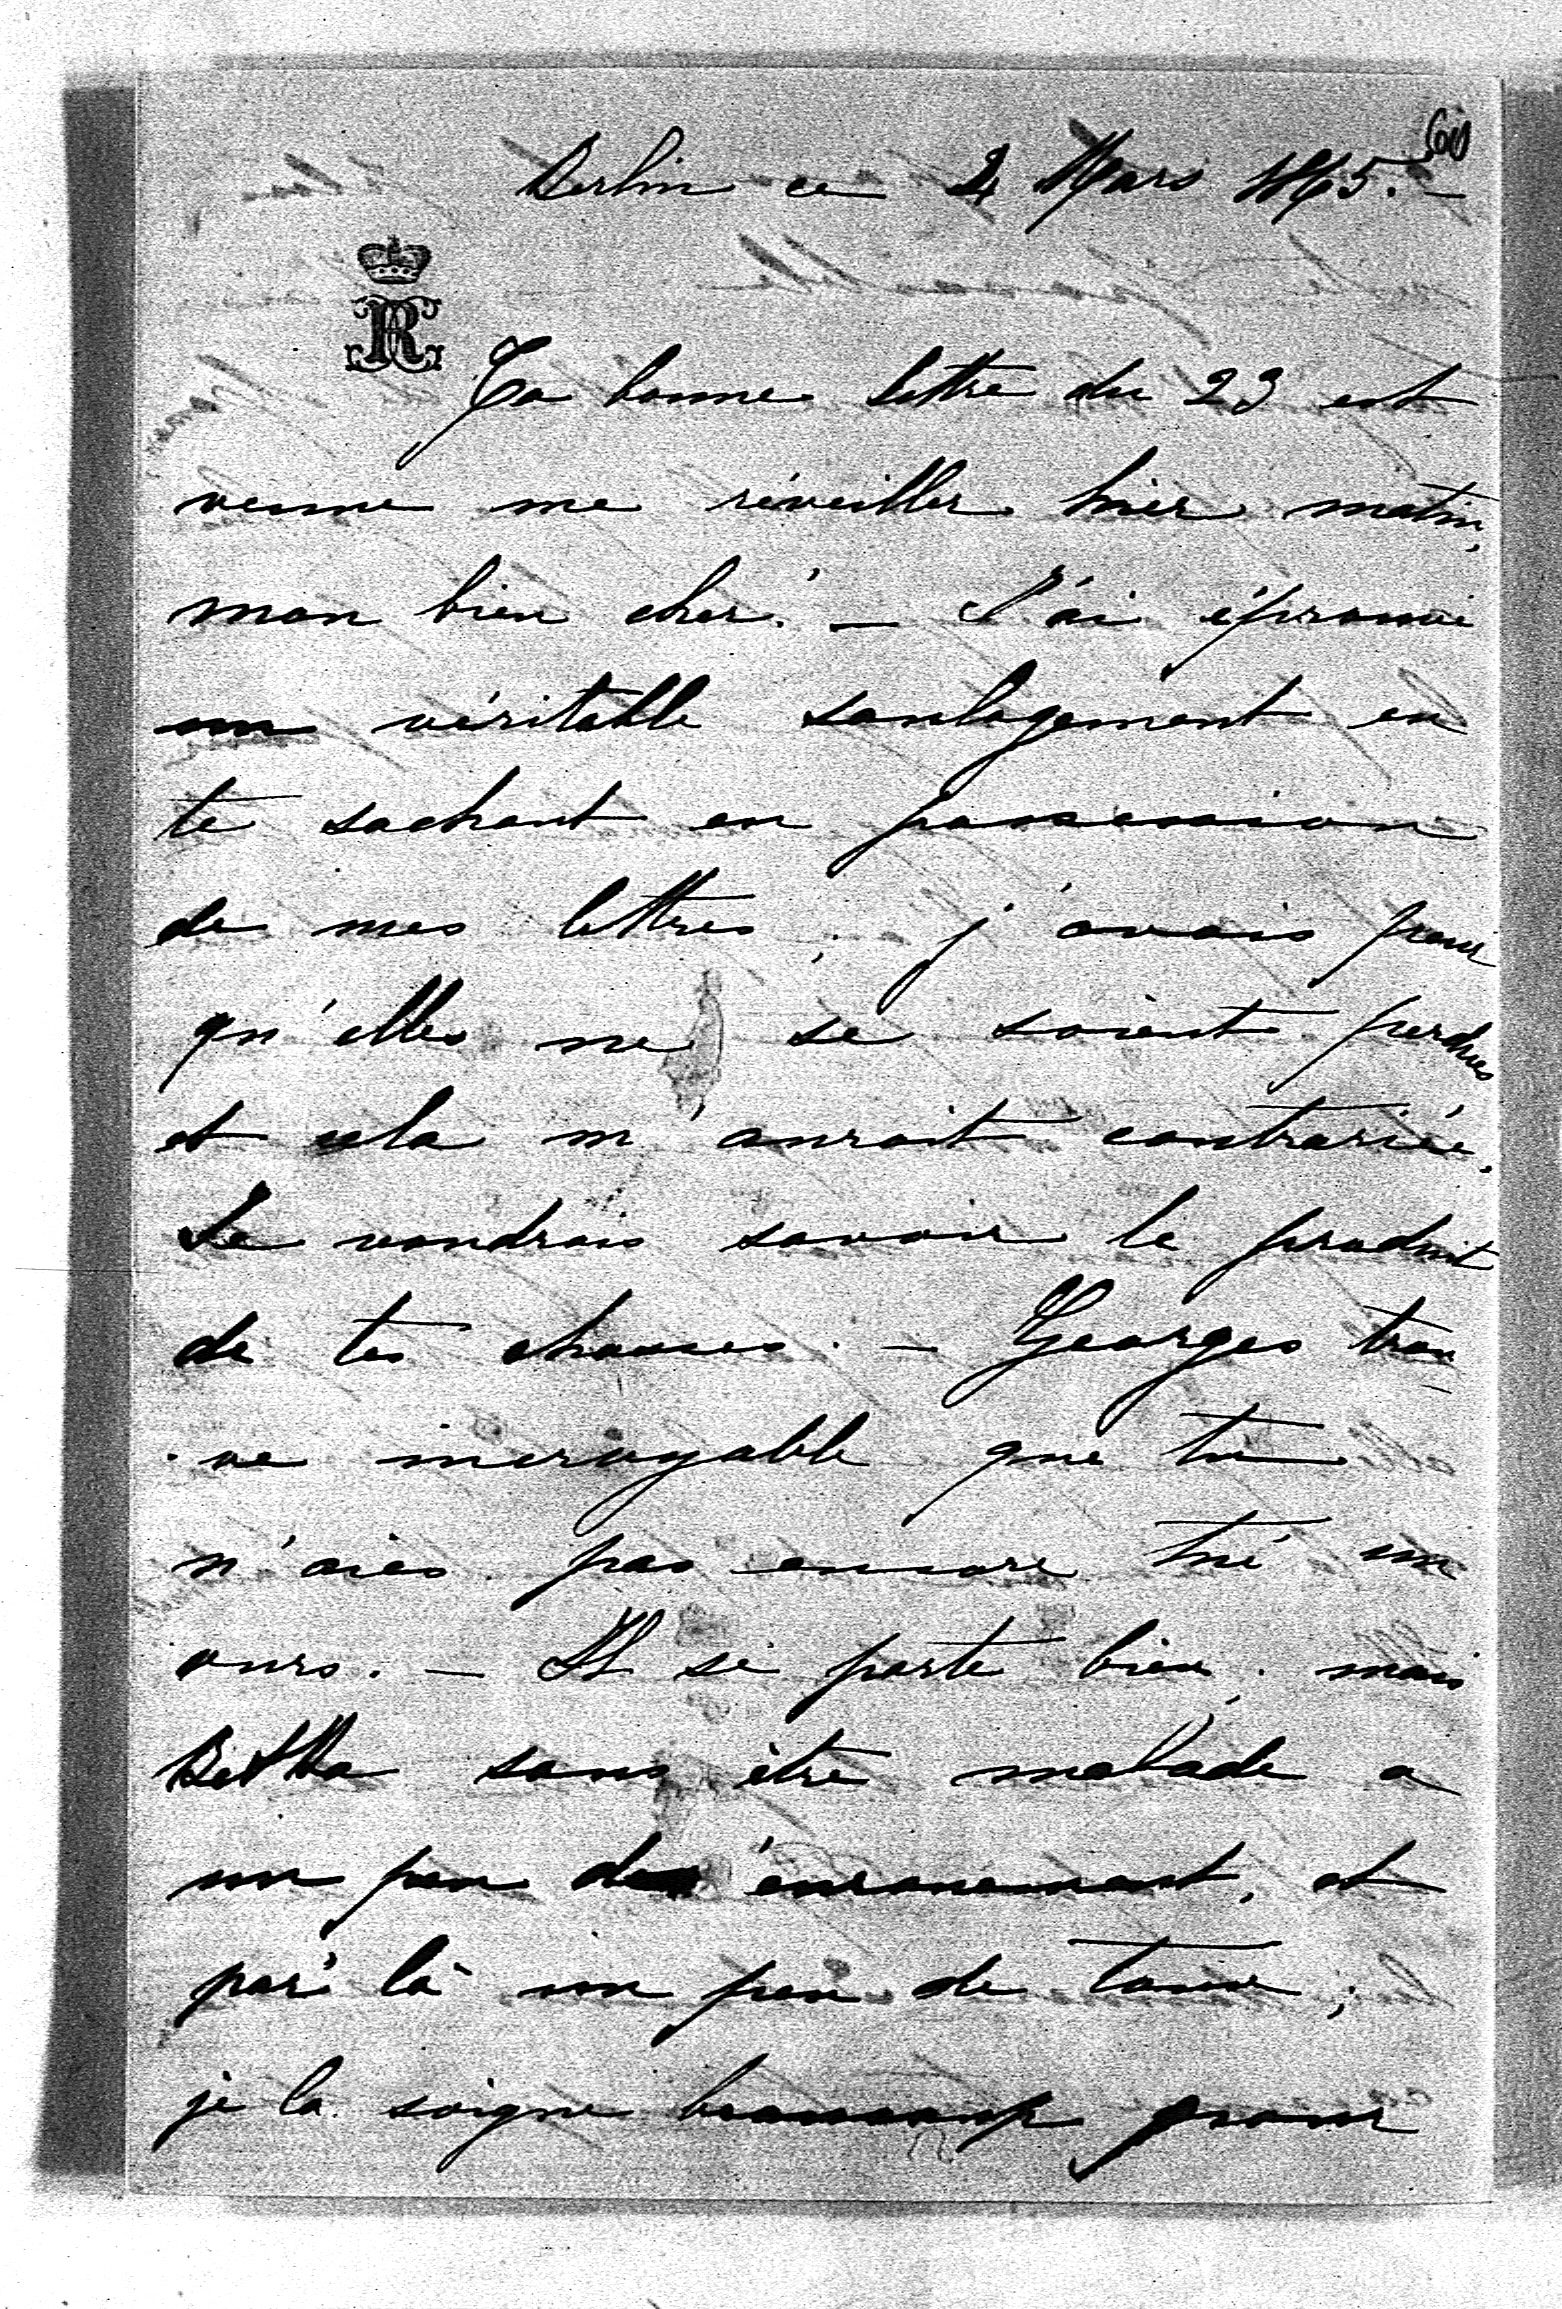 60
Berlin ce 2 Mars 1865. —
Ta bonne lettre du 23 est
venue me réveiller hier matin,
mon bien cher. — J'ai éprouvé
un véritable soulagement en
te sachant en possession
de mes lettres; j'avais peur
qu'elles ne se soient perdues
et cela m'auroit contrariée.
Je voudrais savoir le produit
de tes chasses. — Georges trou
-ve incroyable que tu
n'aies pas encore tué un
ours. — Il se porte bien, mais
sans être malade a
un peu d'enrouement, et
par là un peu de toux;
je la soigne beaucoup pour